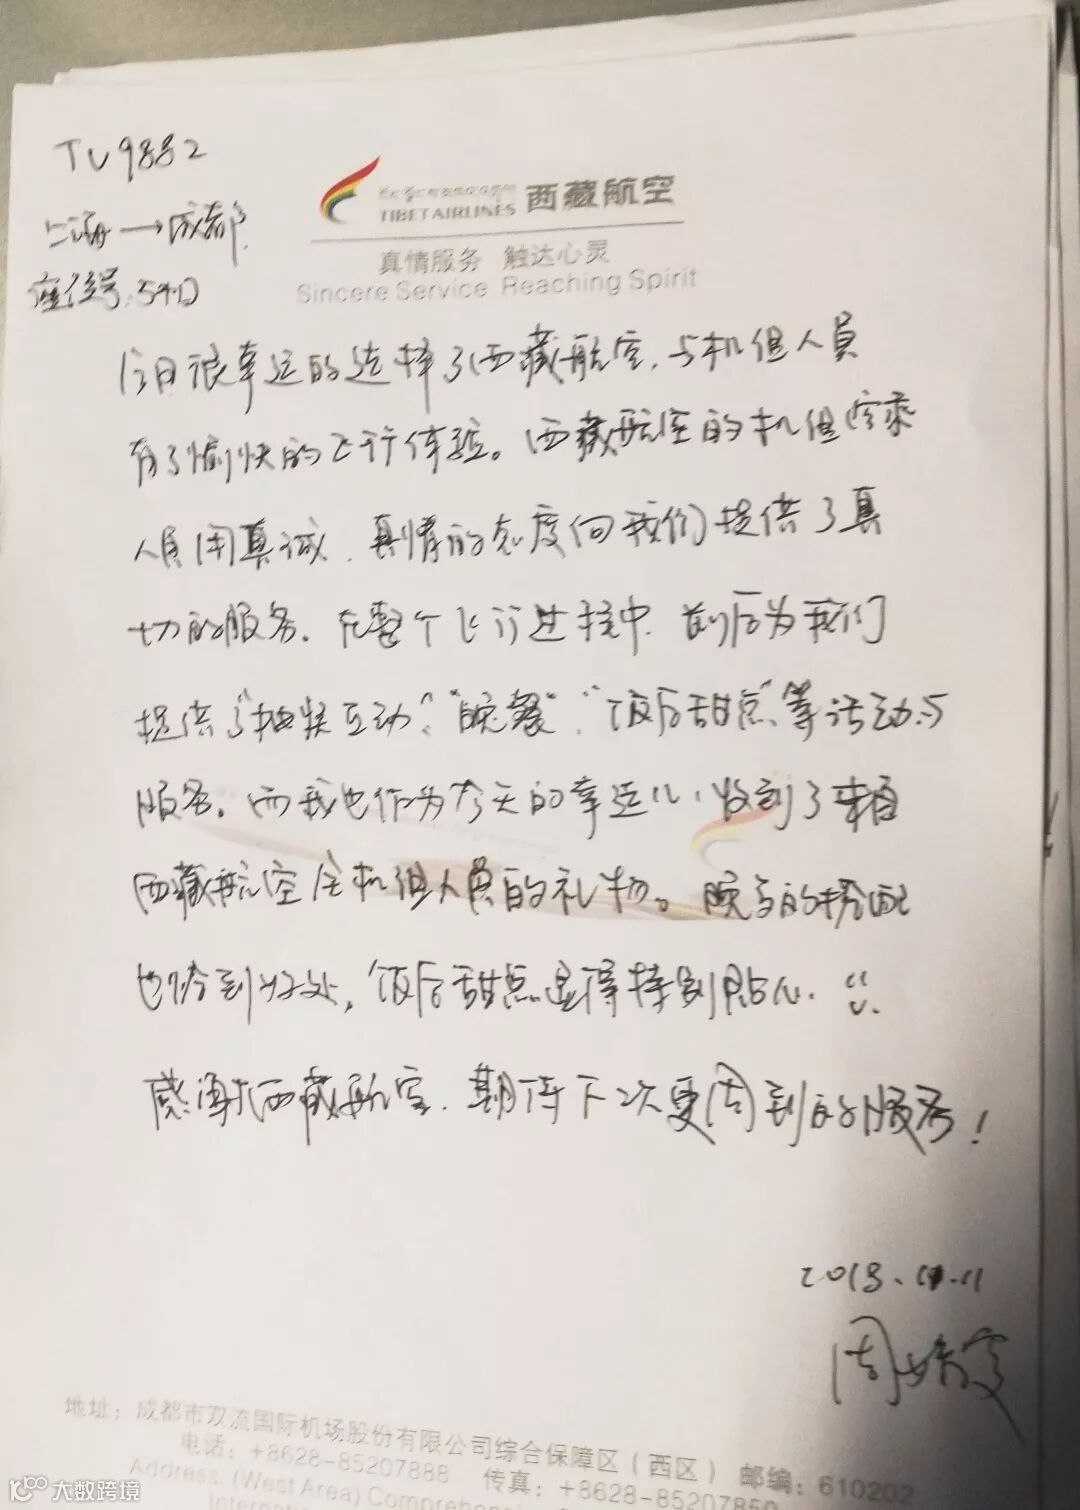 TV9882
上海→成都.
座位号:54D
TIBET AIRLINES 西藏航空
真情服务 触达心灵
Sincere Service Reaching Spirit
今日很幸运的选择了西藏航空,与机组人员
有了愉快的飞行体验。西藏航空的机组空乘
人员用真诚、真情的态度向我们提供了真
切的服务.在整个飞行过程中.前后为我们
提供了“抽奖互动”、“晚餐”、“饭后甜点”等活动与
服务。而我也作为今天的幸运儿,收到了来自
西藏航空全机组人员的礼物。晚餐的搭配
也恰到好处,饭后甜点显得特别贴心.
感谢西藏航空.期待下次更周到的服务!
2018.11.11
周
地址:成都市双流国际机场股份有限公司综合保障区(西区) 邮编:610202
电话:+8628-85207888 传真:+8628-85207850
Address (West Area) Comprehen
Intern
大数跨境